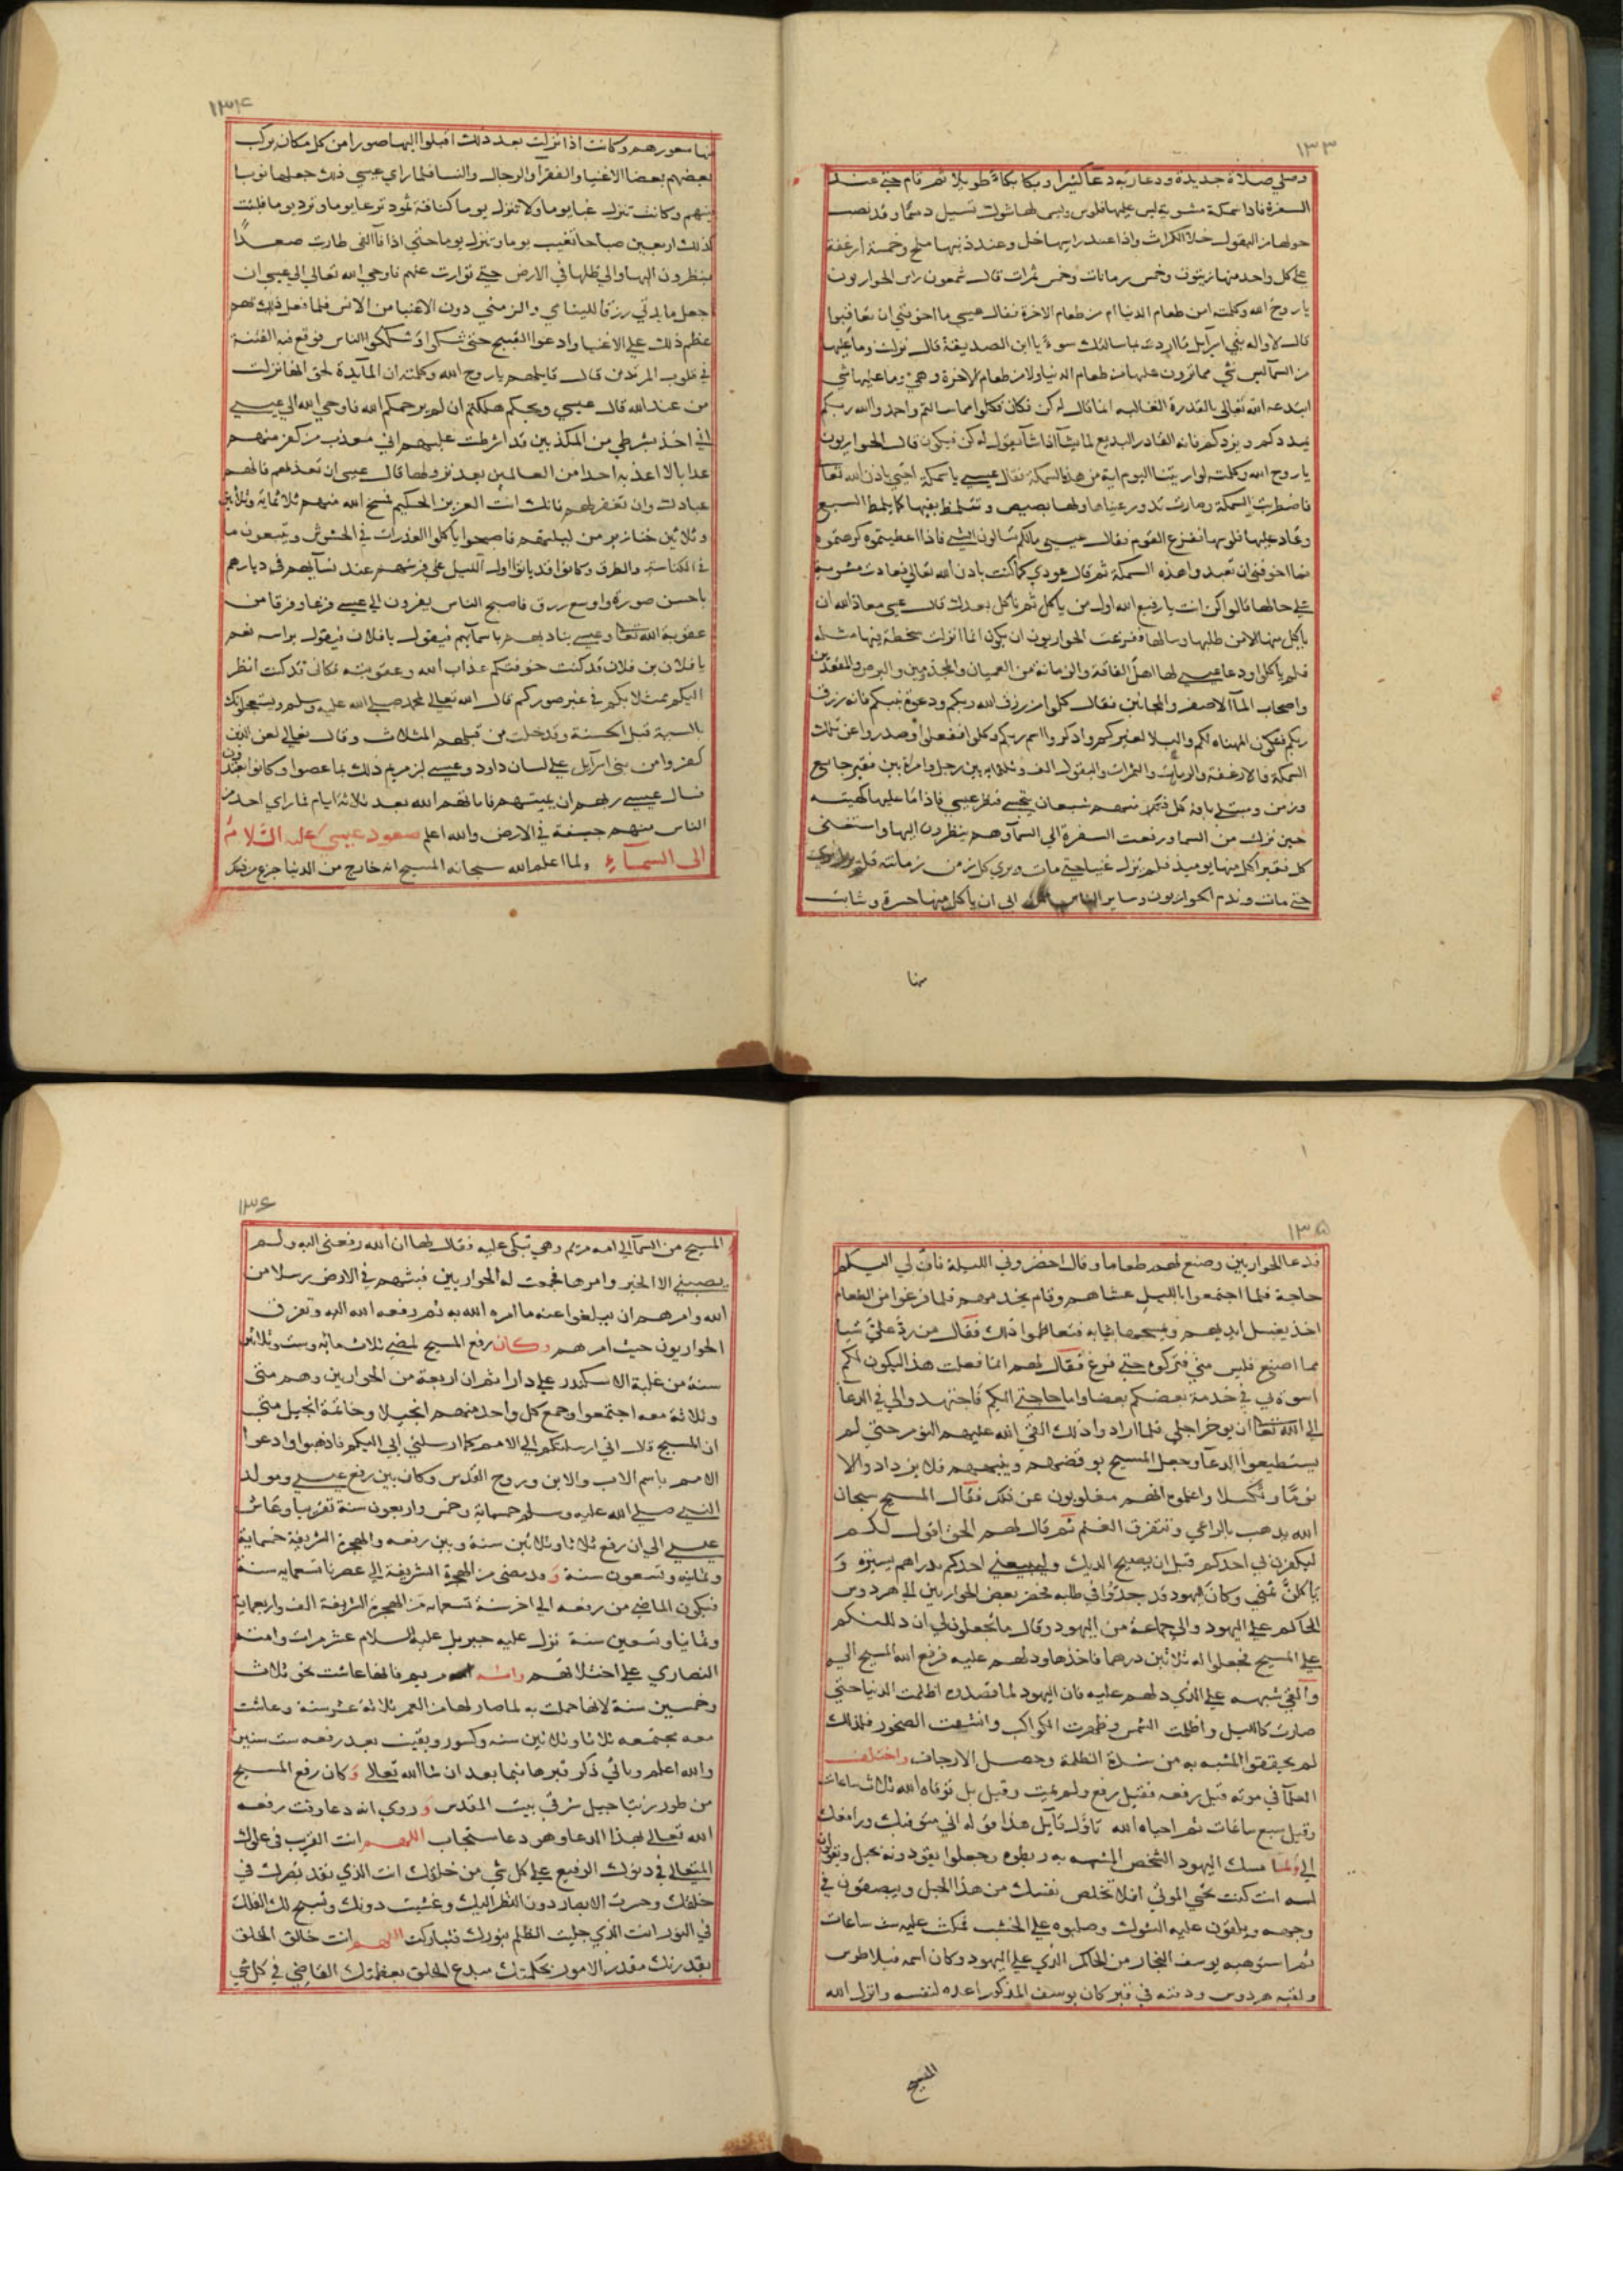 ١٣٣
وصلي صلاة جديدة ودعا ربه دعا كثيرا وبكا بكاء طويلا ثم قام حتى عند
السفرة فاذا سمكة مشوية ليس عليها فلوس وليس لها شوك تسيل دسما وقد نصب
حولها من البقول خلا الكراث واذا عند راسها خل وعند ذنبها ملح وخمسة ارغفة
على كل واحد منها زيتون وخمس رمانات وخمس تمرات قال شمعون راس الحواريون
يا روح الله وكلمته امن طعام الدنيا ام من طعام الاخرة فقال عيسي ما اخوفني ان تعاقبوا
قال لا واله بني اسرآيل ما اردت بما سالتك سوءا يا ابن الصديقة قال نزلت وما عليها
من السما ليس شي مما ترون عليها من طعام الدنيا ولا من طعام الاخرة وهي وما عليها شي
ابتدعه الله تعالى بالقدرة الغالبه انما قال له كن فكان فكلوا مما سالتم واحمدوا الله ربكم
يمددكم ويزدكم فانه القادر البديع لما يشآ اذا شآ يقول له كن فيكون قال الحواريون
يا روح الله وكلمته لو اريتنا اليوم اية من هذه السمكة فقال عيسي يا سمكة احيي باذن الله تعا
فاضطربت السمكة وصارت تدور عيناها ولها بصيص وتتلمظ بفيها كما يتلمظ السبع
وعاد عليها فلوسها ففزع القوم فقال عيسي مالكم تسالون الشي فاذا اعطيتموه كرهتموه
فما اخوفني ان تعبدوا هذه السمكة ثم قال عودي كما كنت باذن الله تعالى فعادت مشوية
على حالها قالوا كن انت يا رفيع الله اول من ياكل ثم ناكل بعدك قال عيسي معاذ الله ان
ياكل منها الا من طلبها وسالها ففرغت الحواريون ان يكون انما انزلت سخطة فيها مثله
فلم ياكلوا ودعا عيسي لها اهل الفاقة والزمانة من العميان والمجذمين والبرص والمقعدين
واصحاب المآ الاصفر والمجانين فقال كلوا من رزق الله ربكم ودعوة نبيكم فانه رزق
ربكم فتكون المهناه لكم والبلا لغيركم واذكروا اسم ربكم وكلوا ففعلوا وصدروا عن تلك
السمكة والارغفة والرمانات والتمرات والبقول الف وثلثمايه بين رجل وامراة بين فقير جايع
وزمن ومبتلى باوفه كل ذلك منهم شبعان يتجشى فنظر عيسي فاذا ما عليها كهيئته
حين نزلت من السما ورفعت السفرة الي السمآ وهم ينظرون اليها واستغنى
كل فقير اكل منها يوميذ فلم يزل غنيا حتى مات وبري كل زمن من زمانته فلم يزل بري
حتى مات وندم الحواريون وساير الناس ابي ان ياكل منها حسرة وشابت
منها
١٣٤
منها سعورهم وكانت اذا نزلت بعد ذلك اقبلوا اليها صورا من كل مكان يركب
بعضهم بعضا الاغنيا والفقرآ والرجال والنسا فلما راي عيسي ذلك جعلها نوبا
بينهم وكانت تنزل غبا يوما ولا تنزل يوما كناقة ثمود ترعا يوما وترد يوما فلبثت
كذلك اربعين صباحا تغيب يوما وتنزل يوما حتى اذا فآ الفي طارت صعدًا
ينظرون اليها والي ظلها في الارض حتى توارت عنهم فاوحي الله تعالى الى عيسي ان
اجعل مايدتي رزقا لليتامي والزمني دون الاغنيا من الانس فلما فعل ذلك بهم
عظم ذلك على الاغنيا وادعوا القبيح حتى شكوا وشككوا الناس فوقع منه الفتنة
في قلوب المرتدين قال قايلهم يا روح الله وكلمته ان المآيدة لحق انها نزلت
من عند الله قال عيسي ويحكم هلكتم ان لم يرحمكم الله فاوحي الله الي عيسي
اني اخذ بشرطي من المكذبين قد اشرطت عليهم اني معذب من كفر منهم
عذابا لا اعذبه احدا من العالمين بعد نزولها قال عيسي ان تعذبهم فانهم
عبادك وان تغفر لهم فانك انت العزيز الحكيم فمسخ الله منهم ثلاثماية وثلاثين
وثلاثين خنازير من ليلتهم فاصبحوا ياكلوا العذرات في الحشوش ويتبعون ما
في الكناسة والطرق وكانوا قد باتوا اول الليل علي فرشهم عند نسآيهم في ديارهم
باحسن صورة واوسع رزق فاصبح الناس يفرون الي عيسي فزعا وفرقا من
عقوبة الله تعا وعيسي يناديهم باسمآيهم فيقول يا فلان فيقول براسه نعم
يا فلان بن فلان قد كنت خوفتكم عذاب الله وعقوبته فكاني قد كنت انظر
اليكم ممثلا بكم في غير صوركم قال الله تعالي لمحمد صلي الله عليه وسلم ويستعجلونك
بالسية قبل الحسنة وقد خلت من قبلهم المثلات وقال تعالي لعن الذين
كفروا من بني اسرآيل علي لسان داود وعيسي ابن مريم ذلك بما عصوا وكانوا يعتدون
فسال عيسي ربهم ان يميتهم فاماتهم الله بعد ثلاثة ايام فما راي احد من
الناس منهم جيفة في الارض والله اعلم صعود عيسي عليه السلام
الى السمآء ولما اعلم الله سبحانه المسيح انه خارج من الدنيا جزع من ذلك
١٣٥
فدعا الحواريين وصنع لهم طعاما وقال احضروني الليلة فان لي اليكم
حاجة فلما اجتمعوا بالليل عشاهم وقام يخدمهم فلما فرغوا من الطعام
اخذ يغسل ايديهم ويمسحها بثيابه فتعاظموا ذلك فقال من رد علي شيا
مما اصنع فليس مني فتركوه حتى فرغ فقال لهم انما فعلت هذا ليكون لكم
اسوة بي في خدمة بعضكم بعضا واما حاجتي اليكم فاجتهدوا لي في الدعا
الي الله تعا ان يوخر اجلي فلما ارادوا ذلك القى الله عليهم النوم حتى لم
يستطيعوا الدعآ وجعل المسيح يوقضهم وينبههم فلا يزدادوا الا
نومًا وتكسلا واعلموه انهم مغلوبون عن ذلك فقال المسيح سبحان
الله يذهب بالراعي وتتفرق الغنم ثم قال لهم الحق اقول لكم
ليكفرن بي احدكم قبل ان يصيح الديك وليبيعني احدكم بدراهم يسيرة و
ياكلنّ ثمني وكان اليهود قد جدّوا في طلبه فحضر بعض الحواريين الى هردوس
الحاكم على اليهود والي جماعة من اليهود وقال ما تجعلون لي ان دللتكم
على المسيح فجعلوا له ثلاثين درهما فاخذها ودلهم عليه فرفع الله المسيح اليه
والقي شبهه على الذي دلهم عليه فان اليهود لما قصدوه اظلمت الدنيا حتى
صارت كالليل واظلمت الشمس وظهرت الكواكب وانشقت الصخور فلذلك
لم يحققوا المشبه به من شدة الظلمة وحصل الارجاف واختلف
العلمآ في موته قبل رفعه فقيل رفع ولم يمت وقيل بل توفاه الله ثلاث ساعات
وقيل سبع ساعات ثم احياه الله تاؤل قآيل هذا قوله اني متوفيك ورافعك
الي ولما مسك اليهود الشخص المشبه به ربطوه وجعلوا يقودونه بحبل ويقولون
له انت كنت تحيي الموتى افلا تخلص نفسك من هذا الحبل ويبصقون في
وجهه ويلقون عليه الشوك وصلبوه على الخشب فمكث عليه ست ساعات
ثم استوهبه يوسف النجار من الحاكم الذي على اليهود وكان اسمه فيلاطوس
ولقبه هردوس ودفنه في قبر كان يوسف المذكور اعده لنفسه وانزل الله
المسيح
١٣٦
المسيح من السمآ الي امه مريم وهي تبكي عليه فقال لها ان الله رفعني اليه ولم
يصيبني الا الخير وامرها فجمعت له الحواريين فبثهم في الارض رسلا من
الله وامرهم ان يبلغوا عنه ما امره الله به ثم رفعه الله اليه وتفرق
الحواريون حيث امرهم وكان رفع المسيح لمضي ثلاث مائة وست وثلاثين
سنة من غلبة الاسكندر على دارا ثم ان اربعة من الحواريين وهم متى
وثلاثة معه اجتمعوا وجمع كل واحد منهم انجيلا وخاتمة انجيل متى
ان المسيح قال اني ارسلتكم الي الامم كما ارسلني ابي اليكم فاذهبوا وادعوا
الامم باسم الاب والابن وروح القدس وكان بين رفع عيسي ومولد
النبي صلي الله عليه وسلم خمسماية وخمس واربعون سنة تقريبا وعاش
عيسي الي ان رفع ثلاثا وثلاثين سنة وبين رفعه والهجرة الشريفة خمسماية
وثمانيه وتسعون سنة وقد مضى من الهجرة الشريفة الي عصرنا تسعمايه سنة
فيكون الماضي من رفعه الي اخر سنة تسعمايه من الهجرة الشريفة الف واربعماية
وثمانيا وتسعين سنة نزل عليه جبريل عليه السلام عشر مرات وامته
النصاري على اختلافهم وامه مريم فانها عاشت نحو ثلاث
وخمسين سنة لانها حملت به لما صار لها من العمر ثلاثة عشر سنة وعاشت
معه مجتمعه ثلاثا وثلاثين سنه وكسور وبقيت بعد رفعه ست سنين
والله اعلم وياتي ذكر قبرها فيما بعد ان شا الله تعالى وكان رفع المسيح
من طور زيتا جبل شرقي بيت المقدس وروي انه دعا وقت رفعه
الله تعالى بهذا الدعا وهو دعا مستجاب اللهم انت القريب في علوك
المتعالي في دنوك الرفيع على كل شي من خلقك انت الذي نفذ بصرك في
خلقك وحسرت الابصار دون النظر اليك وغشيت دونك وتسبح لك الفلك
في النور انت الذي جليت الظلم بنورك فتباركت اللهم انت خالق الخلق
بقدرتك مقدر الامور بحكمتك مبدع الخلق بعظمتك القاضي في كل شي